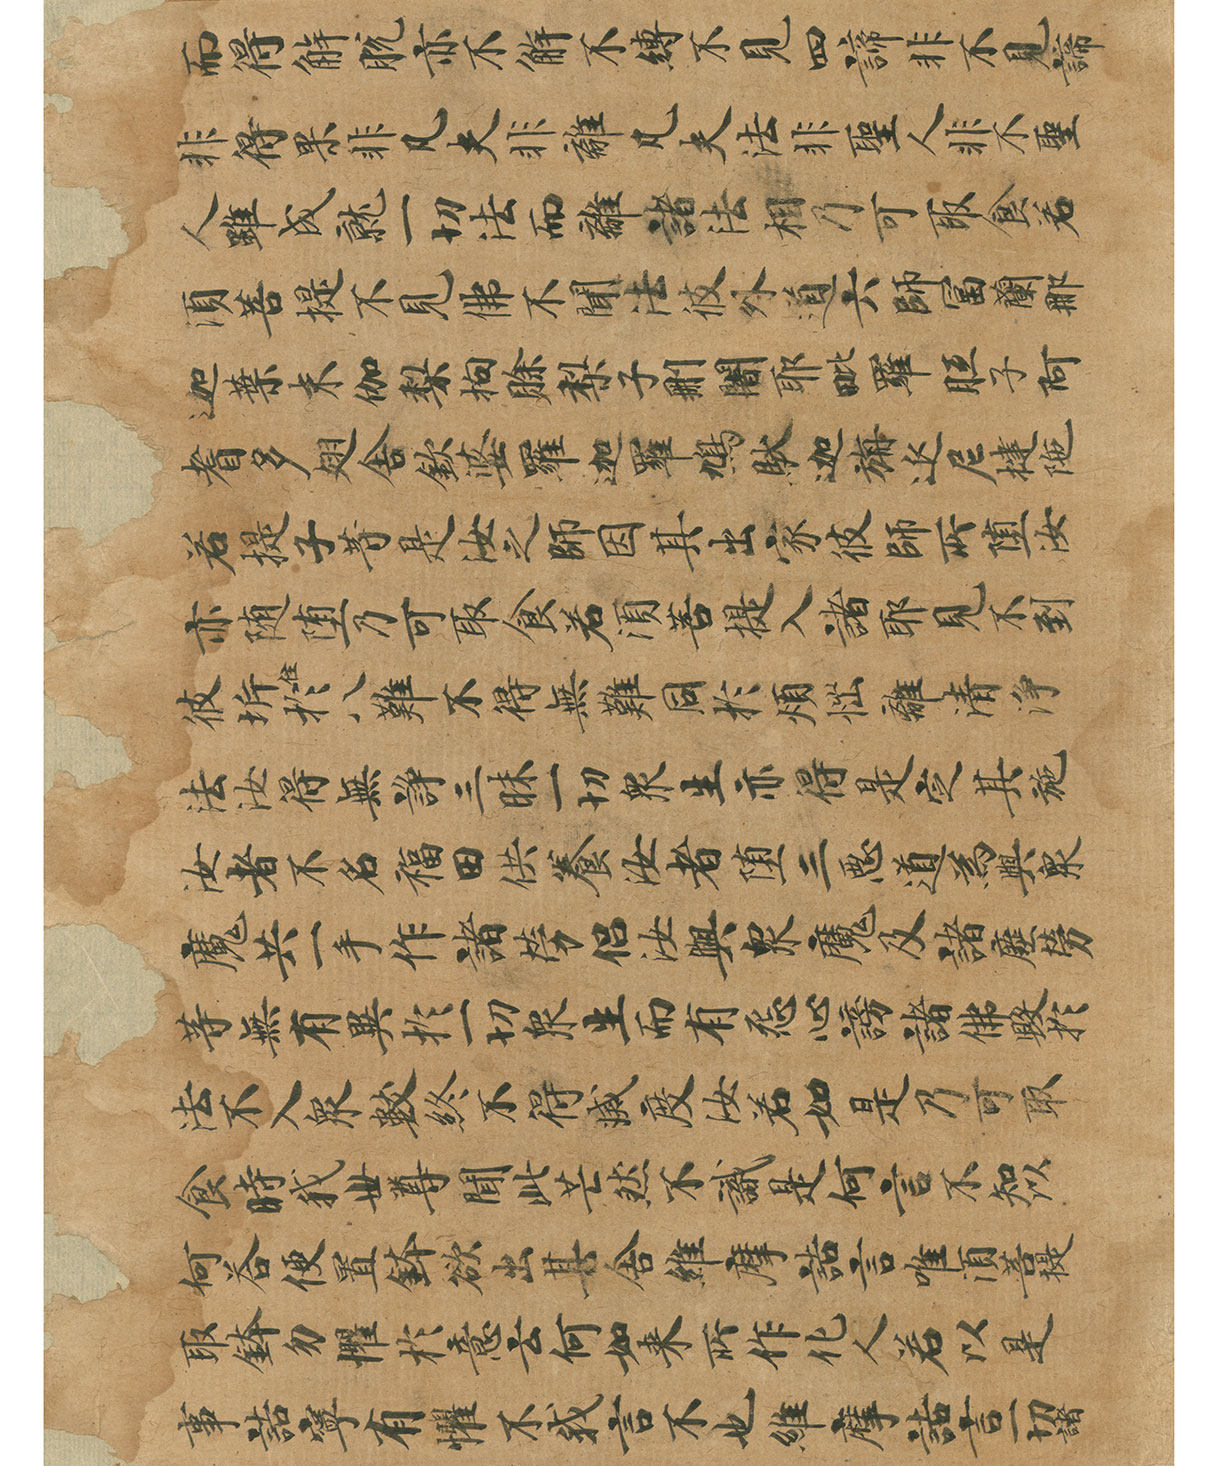 而得解脫亦不解不縛不見四諦非不見諦
非得果非凡夫非離凡夫法非聖人非不聖
人雖成就一切法而離諸法相乃可取食若
須菩提不見佛不聞法彼外道六師富蘭那
迦葉末伽梨拘賒梨子刪闍耶毗羅胝子阿
耆多翅舍欽婆羅迦羅鳩馱迦旃延尼揵陁
若提子等是汝之師因其出家彼師所墮汝
亦隨墮乃可取食若須菩提入諸耶見不到
彼岸住於八難不得無難同於煩惱離清淨
法汝得無諍三昧一切眾生亦得是定其施
汝者不名福田供養汝者墮三惡道為與眾
魔共一手作諸勞侶汝與眾魔及諸塵勞
等無有異於一切眾生而有怨心謗諸佛毀於
法不入眾數終不得滅度汝若如是乃可取
食時我世尊聞此芒然不識是何言不知以
何答便置鉢欲出其舍維摩詰言唯須菩提
取鉢勿懼於意云何如来所作化人若以是
事詰寧有懼不我言不也維摩詰言一切諸